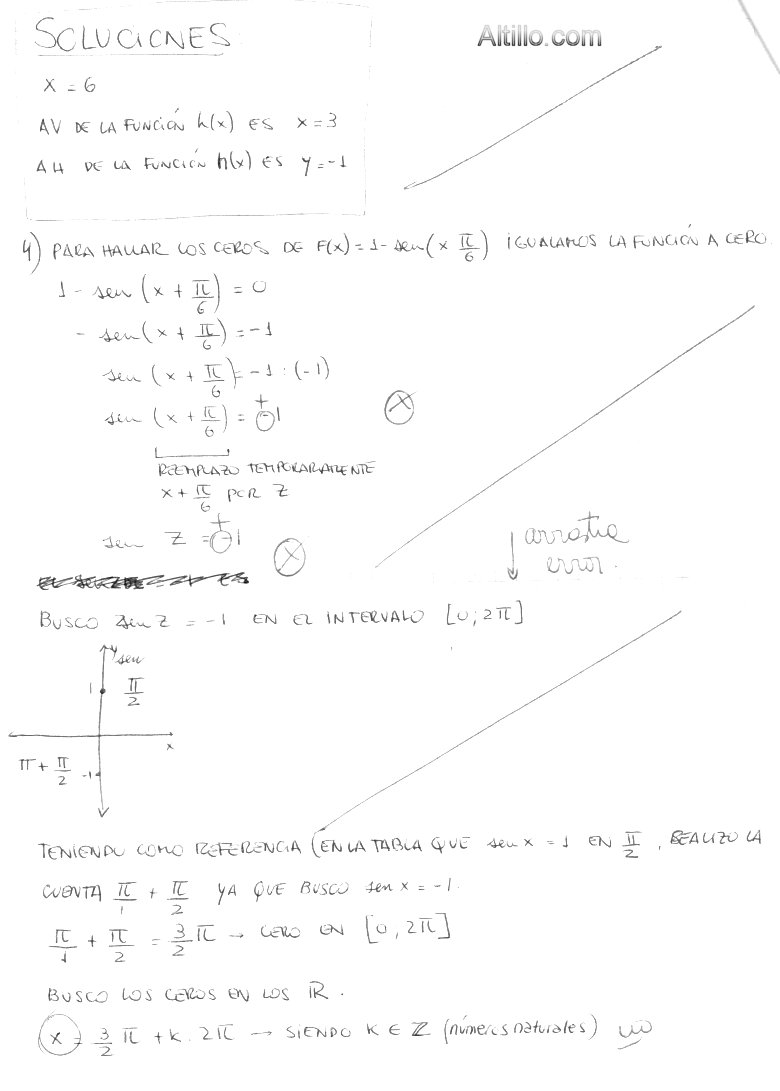 SOLUCIONES
Altillo.com
x = 6
AV DE LA FUNCIÓN h(x) ES x = 3
AH DE LA FUNCIÓN h(x) ES y = -1
4) PARA HALLAR LOS CEROS DE F(x) = 1 - sen(x π/6) IGUALAMOS LA FUNCIÓN A CERO.
1 - sen (x + π/6) = 0
- sen (x + π/6) = -1
sen (x + π/6) = -1 . (-1)
sen (x + π/6) = + - 1
x
REEMPLAZO TEMPORARIAMENTE
x + π/6 POR Z
sen Z = + - 1
x
↓ arrastra
error.
BUSCO sen Z = -1 EN EL INTERVALO [0; 2π]
y sen
1 π/2
x
π + π/2 -1
TENIENDO COMO REFERENCIA (EN LA TABLA QUE sen x = 1 EN π/2, REALIZO LA
CUENTA π/1 + π/2 YA QUE BUSCO sen x = -1.
π/1 + π/2 = 3/2 π → CERO EN [0, 2π]
BUSCO LOS CEROS EN LOS ℝ.
x = 3/2 π + k . 2π → SIENDO K ∈ ℤ (números naturales)